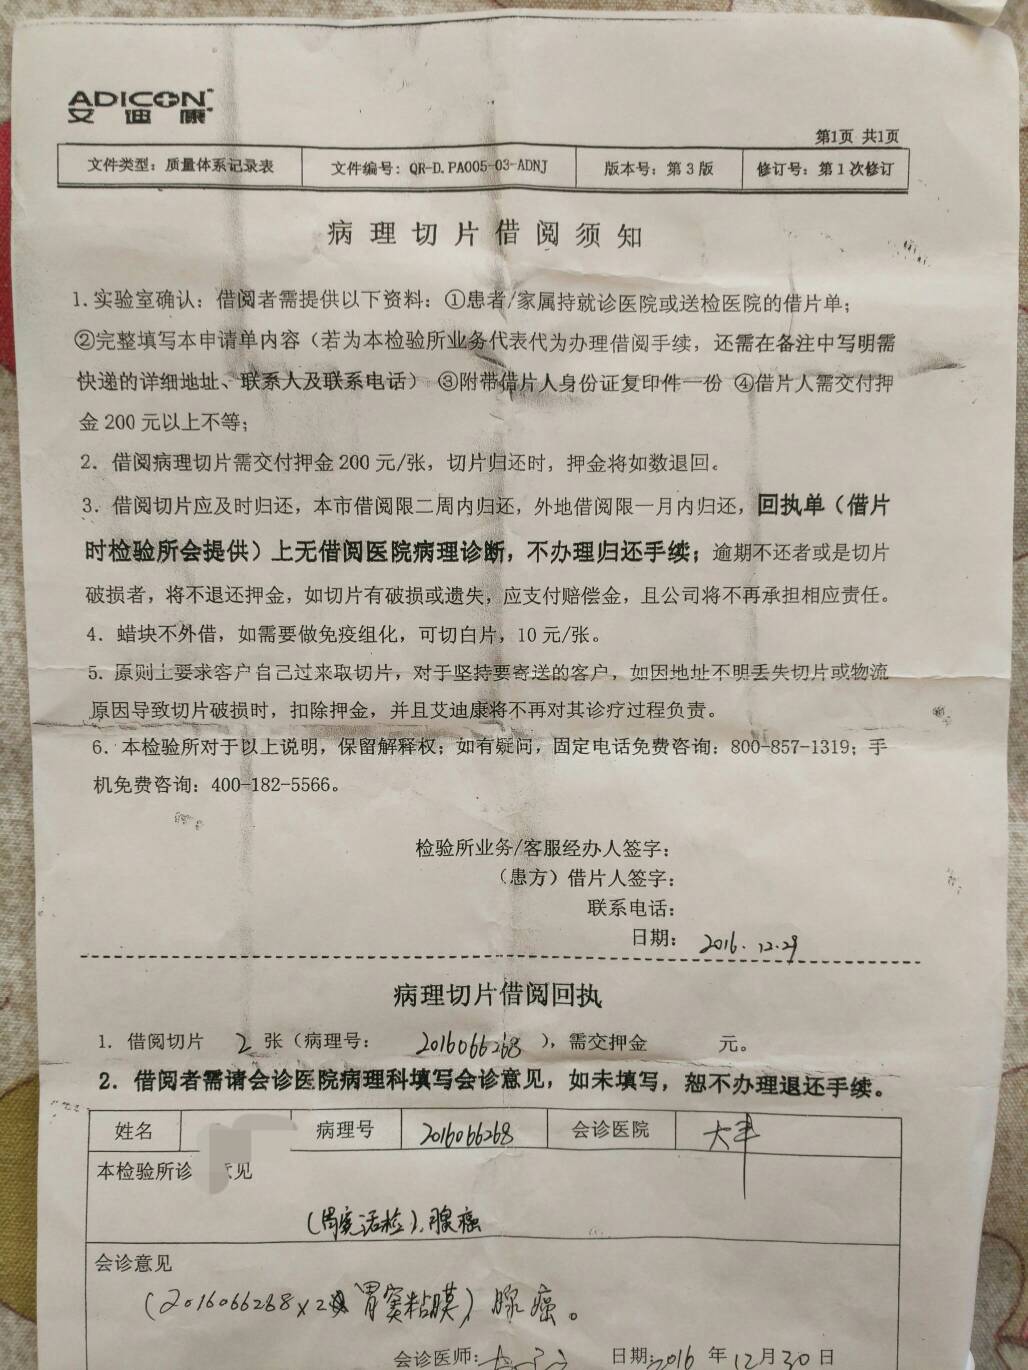 ADICON
艾迪康
第1页 共1页
文件类型：质量体系记录表 文件编号：QR-D.PA005-03-ADNJ 版本号：第 3 版 修订号：第 1 次修订
病理切片借阅须知
1.实验室确认：借阅者需提供以下资料：①患者/家属持就诊医院或送检医院的借片单；
②完整填写本申请单内容（若为本检验所业务代表代为办理借阅手续，还需在备注中写明需
快递的详细地址、联系人及联系电话） ③附带借片人身份证复印件一份 ④借片人需交付押
金 200 元以上不等；
2．借阅病理切片需交付押金 200 元/张，切片归还时，押金将如数退回。
3．借阅切片应及时归还，本市借阅限二周内归还，外地借阅限一月内归还，回执单（借片
时检验所会提供）上无借阅医院病理诊断，不办理归还手续；逾期不还者或是切片
破损者，将不退还押金，如切片有破损或遗失，应支付赔偿金，且公司将不再承担相应责任。
4．蜡块不外借，如需要做免疫组化，可切白片，10 元/张。
5．原则上要求客户自己过来取切片，对于坚持要寄送的客户，如因地址不明丢失切片或物流
原因导致切片破损时，扣除押金，并且艾迪康将不再对其诊疗过程负责。
6．本检验所对于以上说明，保留解释权；如有疑问，固定电话免费咨询：800-857-1319；手
机免费咨询：400-182-5566。
检验所业务/客服经办人签字：
（患方）借片人签字：
联系电话：
日期： 2016.12.29
病理切片借阅回执
1．借阅切片 2 张（病理号： 2016066268 ），需交押金 元。
2．借阅者需请会诊医院病理科填写会诊意见，如未填写，恕不办理退还手续。
姓名 病理号 2016066268 会诊医院 大丰
本检验所诊 意见
(胃窦活检)：腺癌
会诊意见
(2016066268×2 胃窦粘膜) 腺癌。
会诊医师： 日期：2016 年 12月 30 日